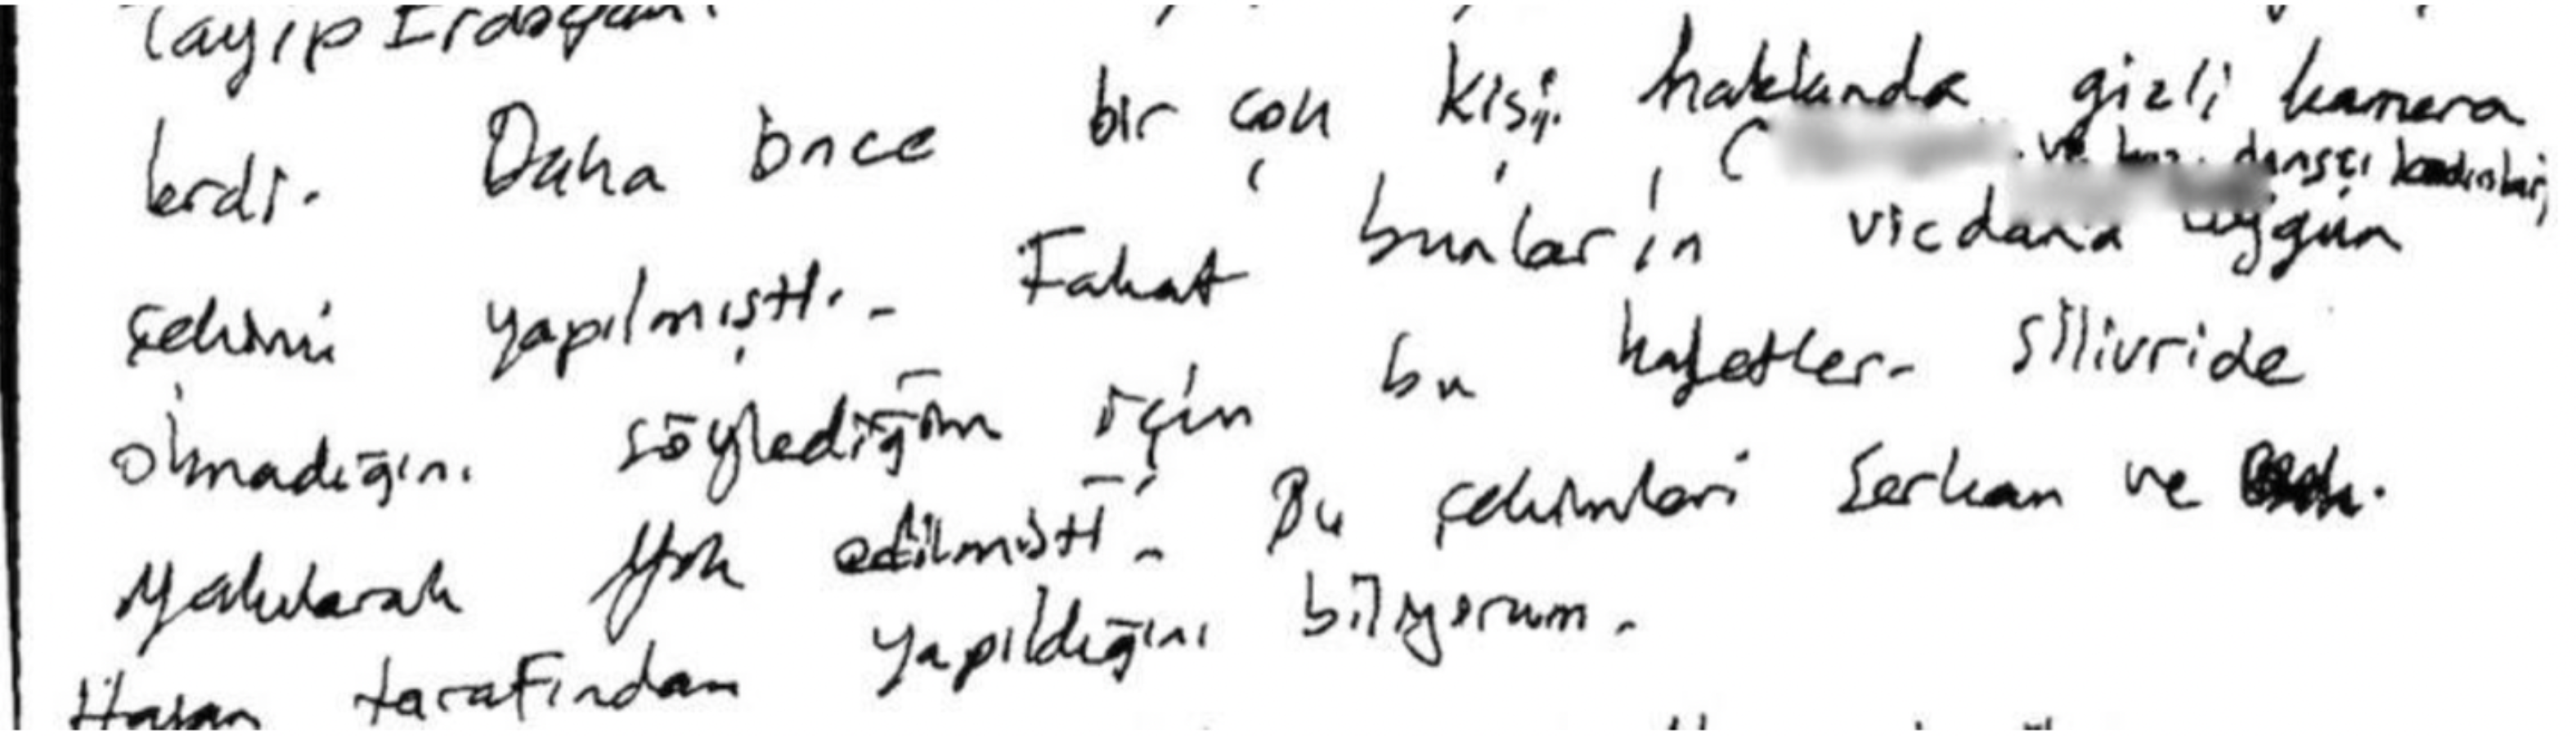 Tayip Erdoğan
lerdi. Daha önce bir çok kişi hakkında gizli kamera
( ve dansçı kadınlar)
çekimi yapılmıştı. Fakat bunların vicdana uygun
olmadığını söylediğim için bu kasetler silivride
yakılarak yok edilmişti. Bu çekimleri Serkan ve
Hasan tarafından yapıldığını biliyorum.